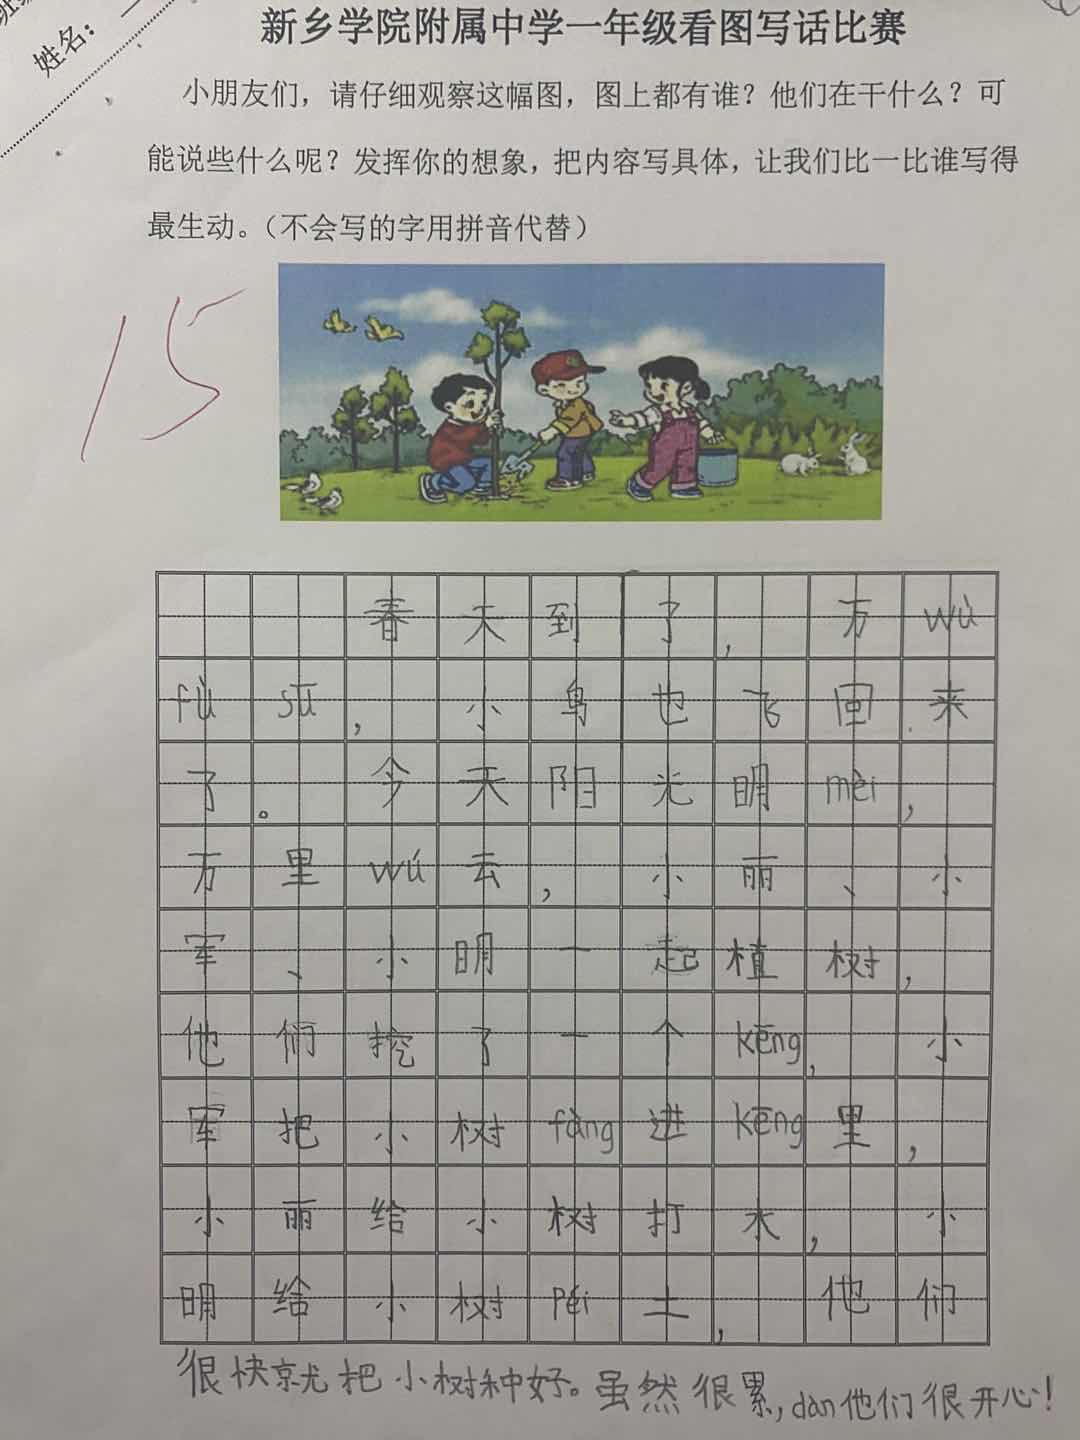 姓名：
新乡学院附属中学一年级看图写话比赛
小朋友们，请仔细观察这幅图，图上都有谁？他们在干什么？可
能说些什么呢？发挥你的想象，把内容写具体，让我们比一比谁写得
最生动。（不会写的字用拼音代替）
15
春天到了，万wù
fù sū，小鸟也飞回来
了。今天阳光明mèi，
万里wú云，小丽、小
军、小明一起植树，
他们挖了一个kēng，小
军把小树fàng进kēng里，
小丽给小树打水，小
明给小树péi土，他们
很快就把小树种好。虽然很累，dàn他们很开心！